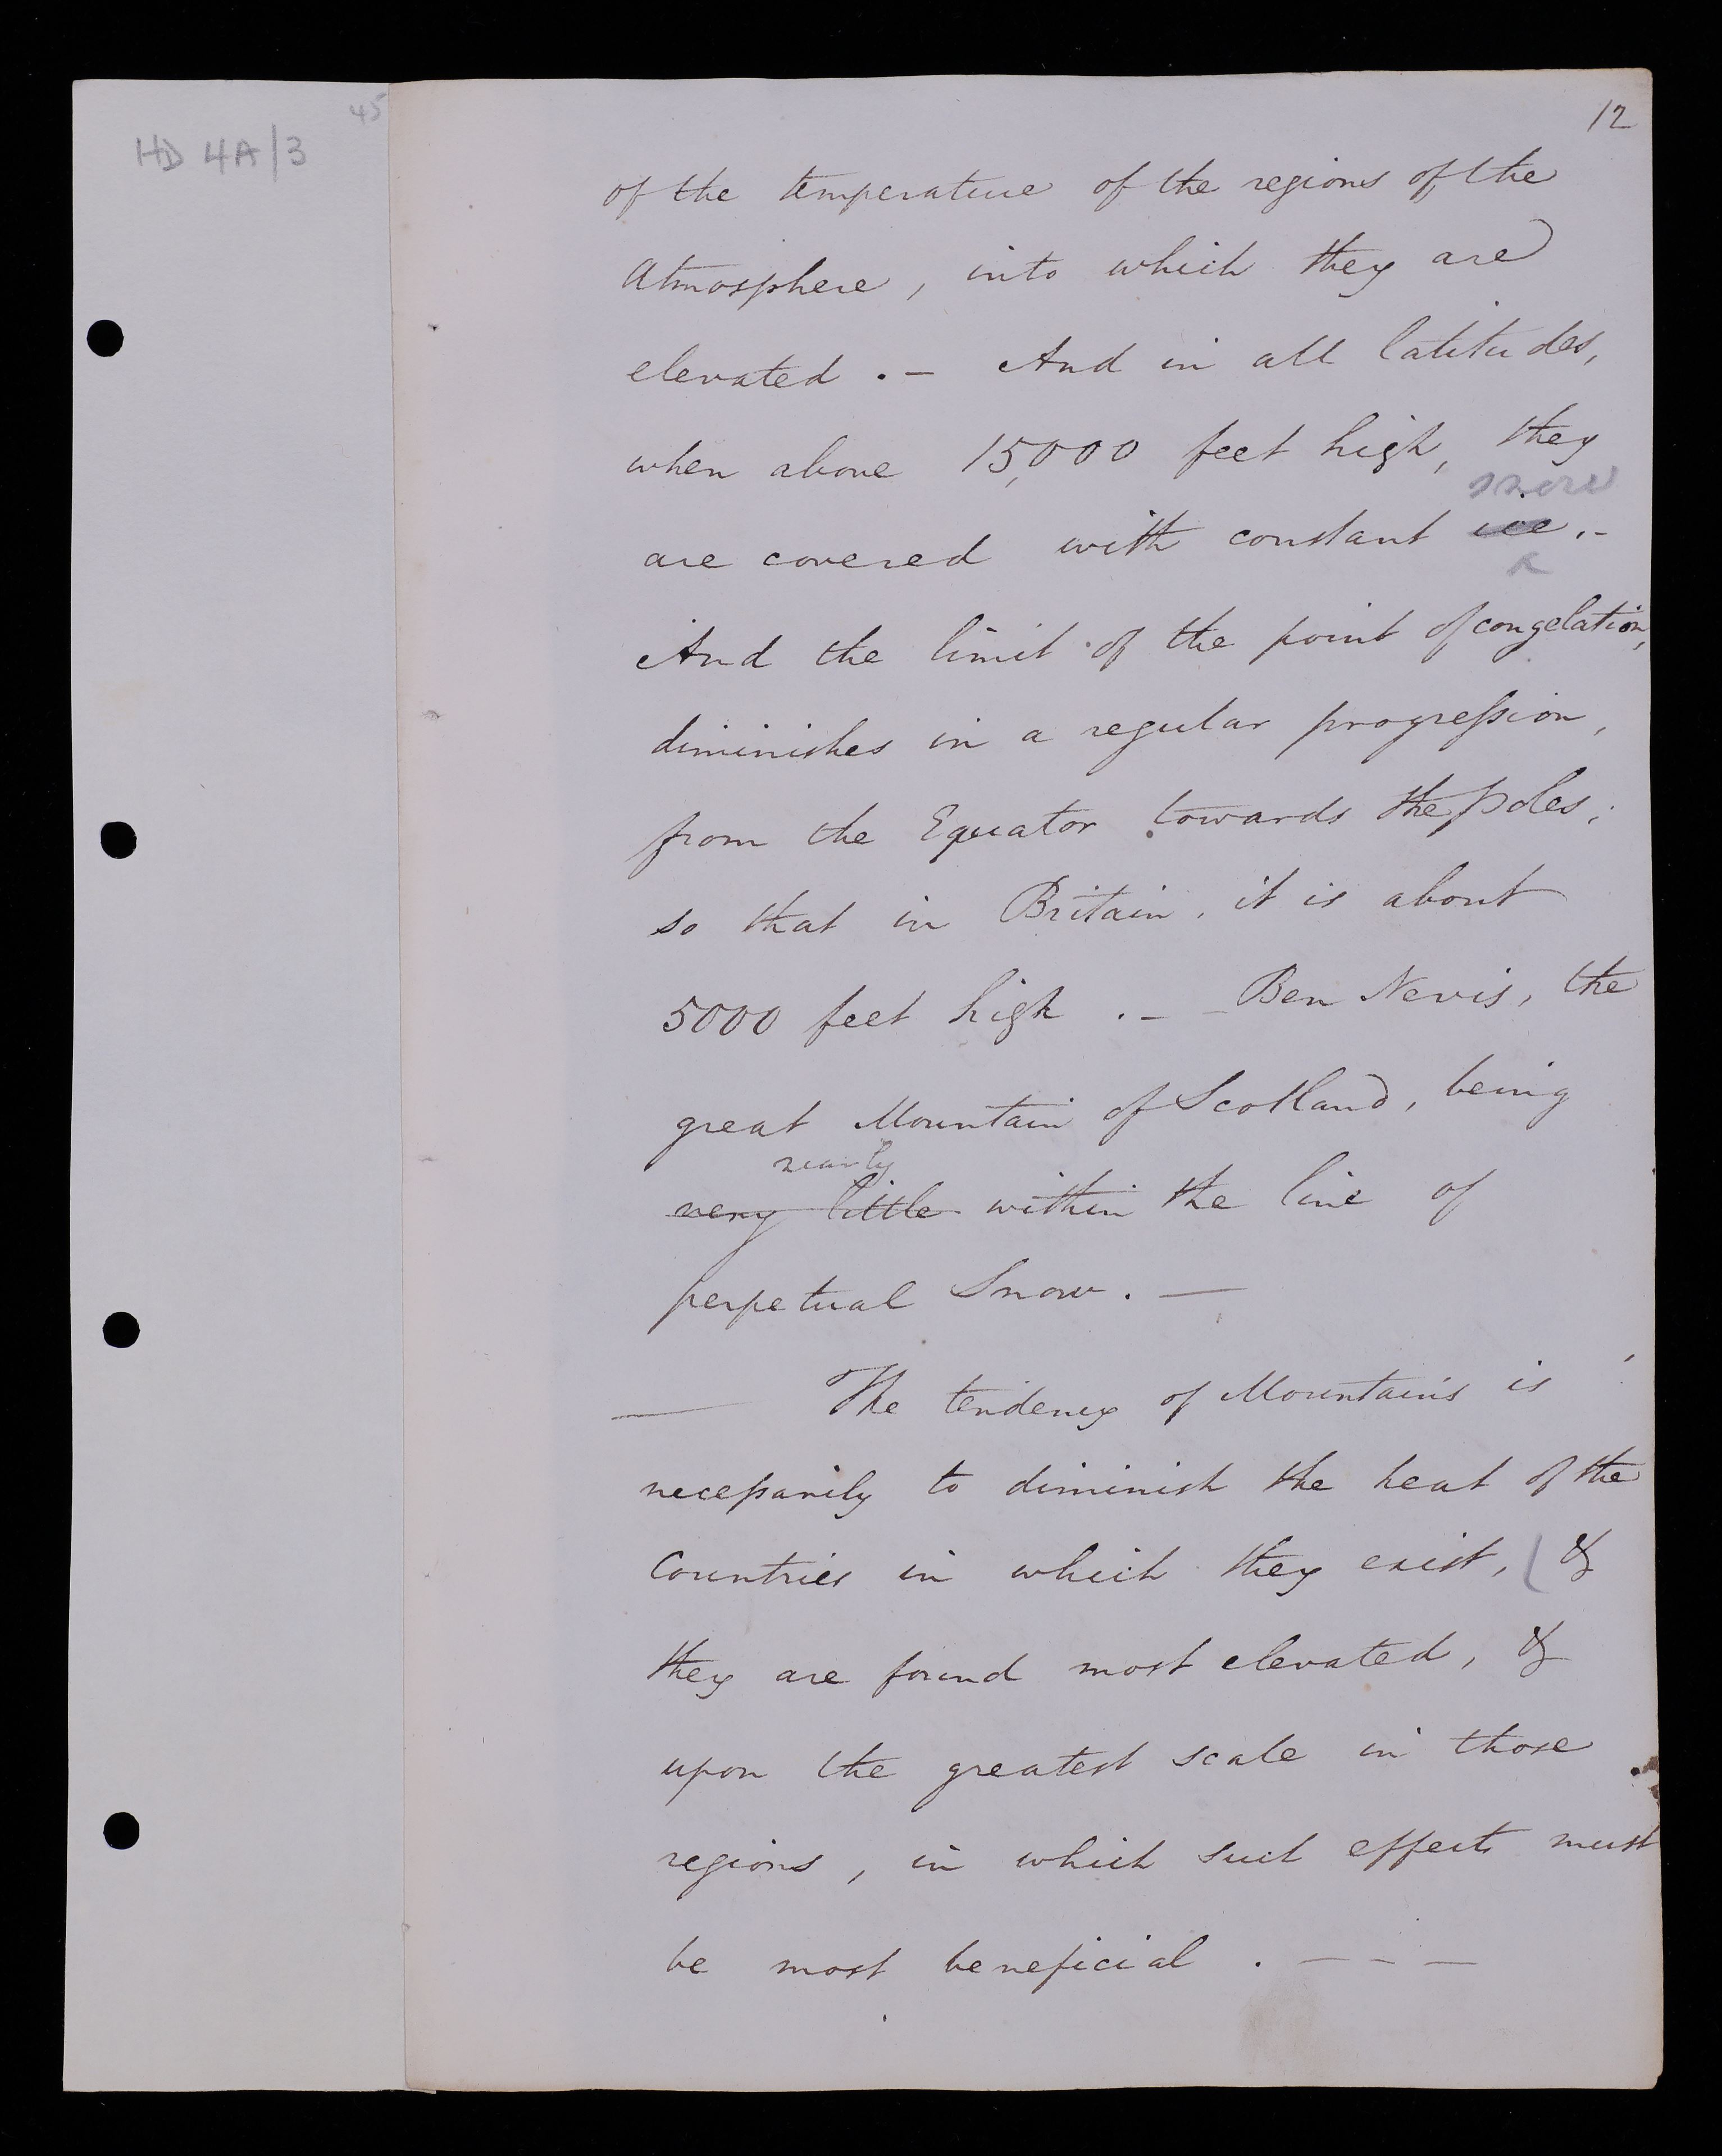 45
HD 4A/3
12
of the temperature of the regions of the
Atmosphere, into which they are
elevated .– And in all latitudes,
when above 15,000 feet high, they
snow
are covered with constant ice .–
And the limit of the point of congelation,
diminishes in a regular progression,
from the Equator towards the Poles;
so that in Britain, it is about
5000 feet high .– – Ben Nevis, the
great Mountain of Scotland, being
nearly
very little within the line of
perpetual Snow. —
— The tendency of Mountains is
necessarily to diminish the heat of the
Countries in which they exist, ( &
they are found most elevated, &
upon the greatest scale in those
regions, in which such effects must
be most beneficial . — – —